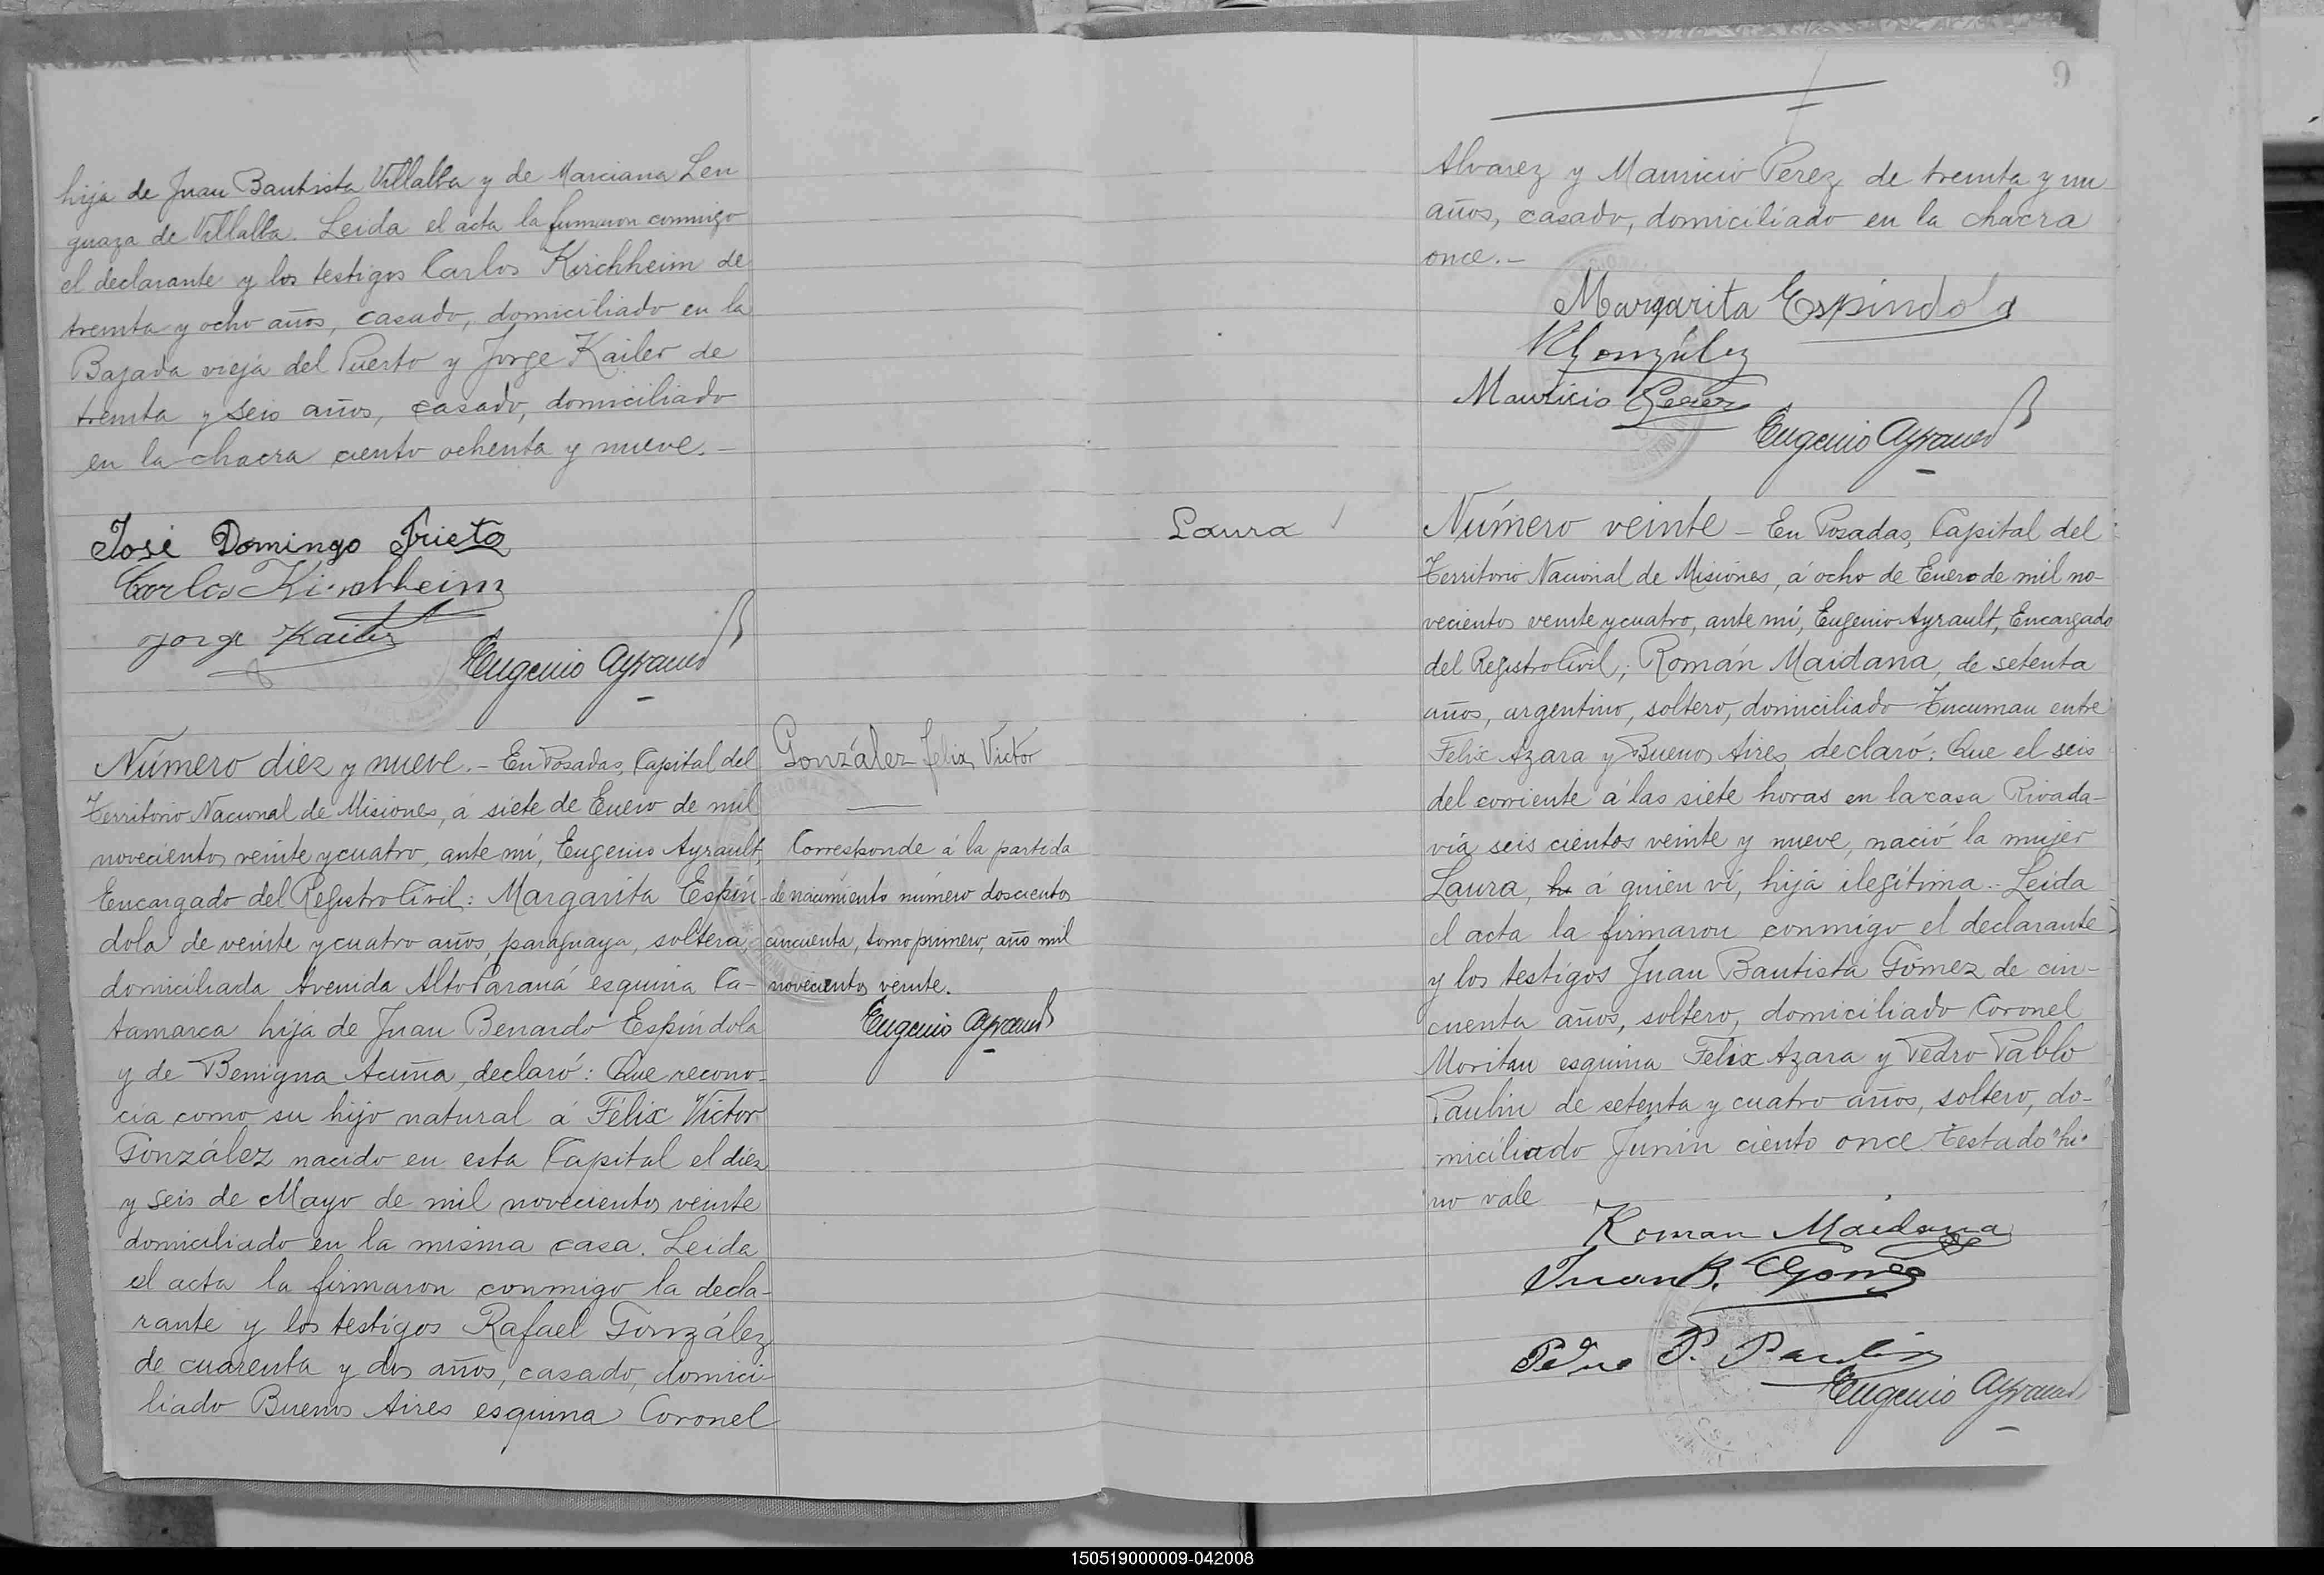 hija de Juan Bautista Villalba y de Marciana Len
guaza de Villalba. Leida el acta la firmaron conmigo
el declarante y los testigos Carlos Kirchheim de
treinta y ocho años, casado, domiciliado en la
Bajada vieja del Puerto y Jorge Kailer de
treinta y seis años, casado, domiciliado
en la chacra ciento ochenta y nueve.-
José Domingo Prieto
Carlos Kirchheim
Jorge Kailer
Eugenio Ayrault
Número diez y nueve.- En Posadas, Capital del
Territorio Nacional de Misiones, á siete de Enero de mil
novecientos veinte y cuatro, ante mí, Eugenio Ayrault,
Encargado del Registro Civil: Margarita Espín-
dola de veinte y cuatro años, paraguaya, soltera,
domiciliada Avenida Alto Paraná esquina Ca-
tamarca hija de Juan Benardo Espíndola
y de Benigna Acuña, declaró: Que recono-
cía como su hijo natural á Félix Victor
González nacido en esta Capital el diez
y seis de Mayo de mil novecientos veinte
domiciliado en la misma casa. Leida
el acta la firmaron conmigo la decla-
rante y los testigos Rafael González
de cuarenta y dos años, casado, domici-
liado Buenos Aires esquina Coronel
González Felix Victor
Corresponde á la partida
de nacimiento número doscientos
cincuenta, tomo primero, año mil
novecientos veinte.
Eugenio Ayrault
9
Alvarez y Mauricio Perez de treinta y un
años, casado, domiciliado en la chacra
once.-
Margarita Espindola
González
Mauricio Perez
Eugenio Ayrault
Laura
Número veinte - En Posadas, Capital del
Territorio Nacional de Misiones, á ocho de Enero de mil no-
vecientos veinte y cuatro, ante mí, Eugenio Ayrault, Encargado
del Registro Civil; Román Maidana, de setenta
años, argentino, soltero, domiciliado Tucuman entre
Felix Azara y Buenos Aires, declaró: Que el seis
del corriente á las siete horas en la casa Rivada-
via seis cientos veinte y nueve, nació la mujer
Laura, hi á quien ví, hija ilegítima.- Leida
el acta la firmaron conmigo el declarante
y los testigos Juan Bautista Gómez de cin-
cuenta años, soltero, domiciliado Coronel
Moritan esquina Felix Azara y Pedro Pablo
Paulin de setenta y cuatro años, soltero, do-
miciliado Junin ciento once. Testado "hi"
no vale
Roman Maidana
Juan B. Gomez
Pedro P. Paulin
Eugenio Ayrault
150519000009-042008